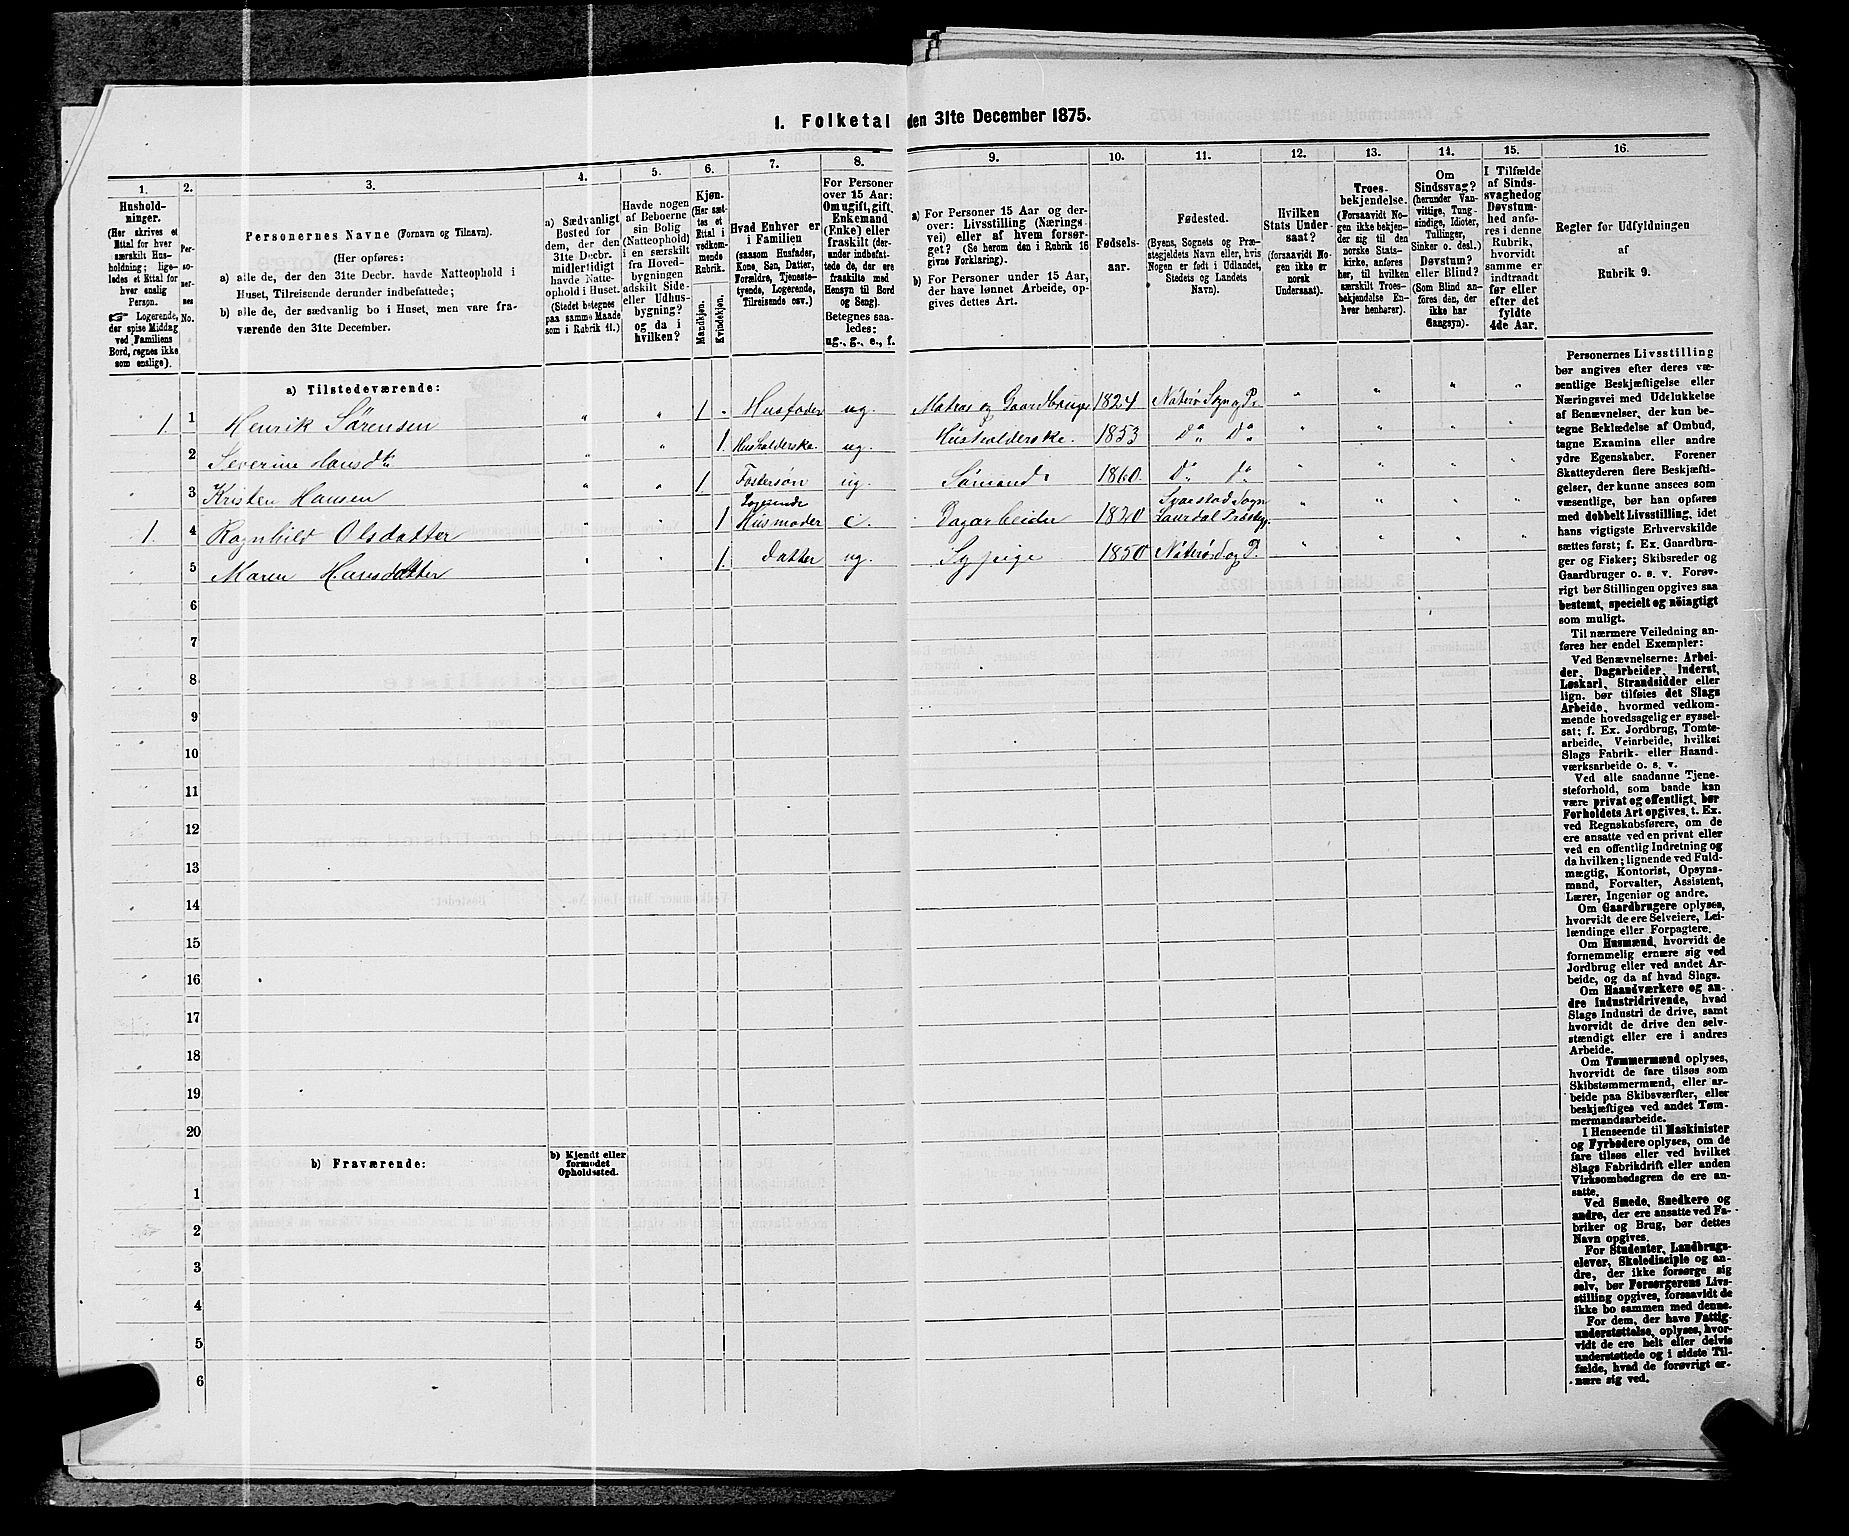 1. Folketal den 31te December 1875.
1. 2. 3. 4. 5. 6. 7. 8. 9. 10. 11. 12. 13. 14. 15. 16.
Hushold-
ninger.
(Her skrives et
Ettal for hver
særskilt Hus-
holdning; lige-
ledes et Ettal for
hver enslig
Person.
☞ Logerende,
der spise Middag
ved Familiens
Bord, regnes ikke
som enslige).
Per-
so-
ner-
nes
No.
Personernes Navne (Fornavn og Tilnavn).
(Her opføres:
a) alle de, der den 31te Decbr. havde Natteophold i
Huset, Tilreisende derunder indbefattede;
b) alle de, der sædvanlig bo i Huset, men vare fra-
værende den 31te December.
a) Sædvanligt
Bosted for
dem, der den
31te Decbr.
midlertidigt
havde Natte-
ophold i Huset.
(Stedet betegnes
paa samme Maade
som i Rubrik 11.)
Havde nogen
af Beboerne
sin Bolig
(Natteophold)
i en særskilt
fra Hoved-
bygningen
adskilt Side-
eller Udhus-
bygning?
og da i
hvilken?
Kjøn.
(Her sæt-
tes et
Ettal i
vedkom-
mende
Rubrik.
Mandkjøn.
Kvindekjøn.
Hvad Enhver er
i Familien
(saasom Husfader,
Kone, Søn, Datter,
Forældre, Tjeneste-
tyende, Logerende,
Tilreisende osv.)
For Personer
over 15 Aar:
Om ugift, gift,
Enkemand
(Enke) eller
fraskilt (der-
under indbefat-
tede de, der ere
fraskilte med
Hensyn til Bord
og Seng).
Betegnes saa-
ledes:
ug., g., e., f.
a) For Personer 15 Aar og der-
over: Livsstilling (Nærings-
vei) eller af hvem forsør-
get? (Se herom den i Rubrik 16
givne Forklaring).
b) For Personer under 15 Aar,
der have lønnet Arbeide, op-
gives dettes Art.
Fødsels-
aar.
Fødested.
(Byens, Sognets og Præ-
stegjeldets Navn eller, hvis
Nogen er født i Udlandet,
Stedets og Landets
Navn).
Hvilken
Stats Under-
saat?
(forsaavidt No-
gen ikke er
norsk
Undersaat).
Troes-
bekjendelse.
(Forsaavidt No-
gen ikke bekjen-
der sig til den
norske Stats-
kirke, anføres
her, til hvilken
særskilt Troes-
bekjendelse En-
hver henhører).
Om
Sindssvag?
(herunder Van-
vittige, Tung-
sindige, Idioter,
Tullinger,
Sinker o. desl.)
Døvstum?
eller Blind?
(Som Blind an-
føres den, der
ikke har
Gangsyn).
I Tilfælde
af Sinds-
svaghed og
Døvstum-
hed anfø-
res i denne
Rubrik,
hvorvidt
samme er
indtraadt
før eller
efter det
fyldte
4de Aar.
Regler for Udfyldningen
af
Rubrik 9.
a) Tilstedeværende:
1. 1 Henrik Sørensen " " 1. " Husfader ug. Matros og Gaardbruger 1824 Nøterø Sogn og Pr. " " " "
2 Severine Hansdtr. " " 1. Husholderske ug. Husholderske. 1853 Do Do " " " "
3 Kristen Hansen " " 1. Fostersøn ug. Sømand. 1860. Do Do " " " "
1. 4 Ragnhild Olsdatter " " 1 Logerende Husmoder e. Dagarbeider 1820 Svarstad Sogn Laurdal Præstegj. " " " "
5 Maren Hansdatter " " 1. Datter ug. Sypige 1850 Nøterø S og P. " " " "
6
7
8
9
10
11
12
13
14
15
16
17
18
19
20
b) Fraværende:
b) Kjendt eller
formodet
Opholdssted.
1
2
3
4
5
6
Personernes Livsstilling
bør angives efter deres væ-
sentlige Beskjæftigelse eller
Næringsvei med Udelukkelse
af Benævnelser, der kun be-
tegne Beklædelse af Ombud,
tagne Examina eller andre
ydre Egenskaber. Forener
Skatteyderen flere Beskjæfti-
gelser, der kunne ansees som
væsentlige, bør han opføres
med dobbelt Livsstilling, idet
hans vigtigste Erhvervskilde
sættes først; f. Ex. Gaardbru-
ger og Fisker; Skibsreder og
Gaardbruger o. s. v. Forøv-
rigt bør Stillingen opgives saa
bestemt, specielt og nöiagtigt
som muligt.
Til nærmere Veiledning an-
føres her endel Exempler:
Ved Benævnelserne: Arbei-
der, Dagarbeider, Inderst,
Løskarl, Strandsidder eller
lign. bør tilføies det Slags
Arbeide, hvormed vedkom-
mende hovedsagelig er syssel-
sat; f. Ex. Jordbrug, Tomte-
arbeide, Veiarbeide, hvilket
Slags Fabrik- eller Haand-
værksarbeide o. s. v.
Ved alle saadanne Tjene-
steforhold, som baade kan
være privat og offentligt, bør
Forholdets Art opgives, t. Ex.
ved Regnskabsførere, om de
ere ansatte ved en privat eller
ved en offentlig Indretning og
da hvilken; lignende ved Fuld-
mægtig, Kontorist, Opsyns-
mand, Forvalter, Assistent,
Lærer, Ingeniør og andre.
Om Gaardbrugere oplyses,
hvorvidt de ere Selveiere, Lei-
lændinge eller Forpagtere.
Om Husmænd, hvorvidt de
fornemmelig ernære sig ved
Jordbrug eller ved andet Ar-
beide, og da af hvad Slags.
Om Haandværkere og an-
dre Industridrivende, hvad
Slags Industri de drive, samt
hvorvidt de drive den selv-
stændigt eller ere i andres
Arbeide.
Om Tømmermænd oplyses,
hvorvidt de fare tilsøs som
Skibstømmermænd, eller ar-
beide paa Skibsværfter, eller
beskjæftiges ved andet Tøm-
mermandsarbeide.
I Henseende til Maskinister
og Fyrbødere oplyses, om de
fare tilsøs eller ved hvilket
Slags Fabrikdrift eller anden
Virksomhedsgren de ere an-
satte.
Ved Smede, Snedkere og
andre, der ere ansatte ved Fa-
briker og Brug, bør dettes
Navn opgives.
For Studenter, Landbrugs-
elever, Skoledisciple og an-
dre, der ikke forsørge sig
selv, bør Forsørgerens Livs-
stilling opgives, forsaavidt de
ikke bo sammen med denne.
For dem, der have Fattig-
understøttelse, oplyses, hvor-
vidt de ere helt eller delvis
understøttede og i sidste Til-
fælde, hvad de forøvrigt er-
nære sig ved.